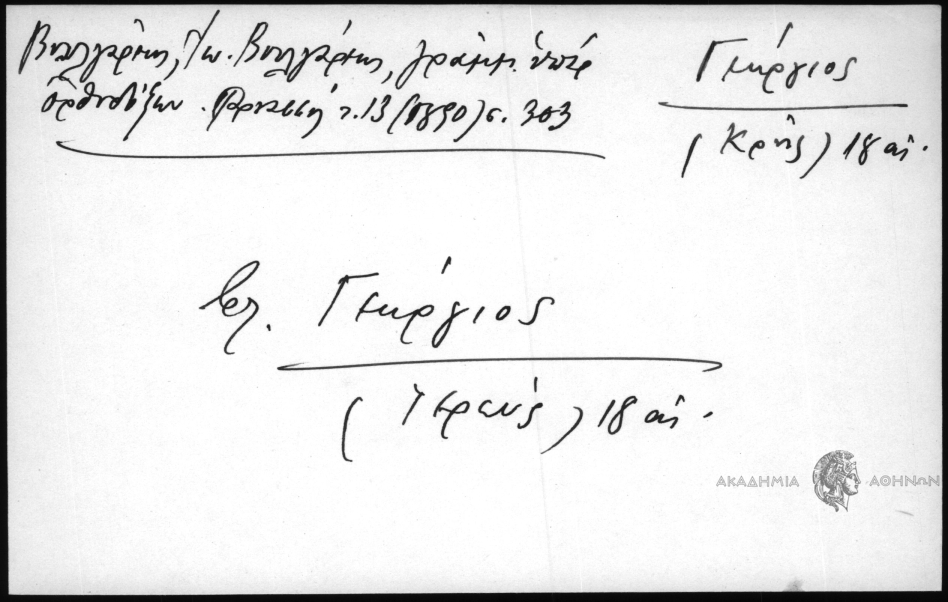 Βουλγάρεως, Γ/ω. Βουλγάρεως, γράμμ. ὑπὲρ
ὀρθοδόξων. Παρνασσὸς τ. 13 (1890) σ. 303
Γεώργιος
(Κρὴς) 18 αἰ.
βλ. Γεώργιος
(Ἱερεύς) 18 αἰ.
ΑΚΑΔΗΜΙΑ ΑΘΗΝΩΝ